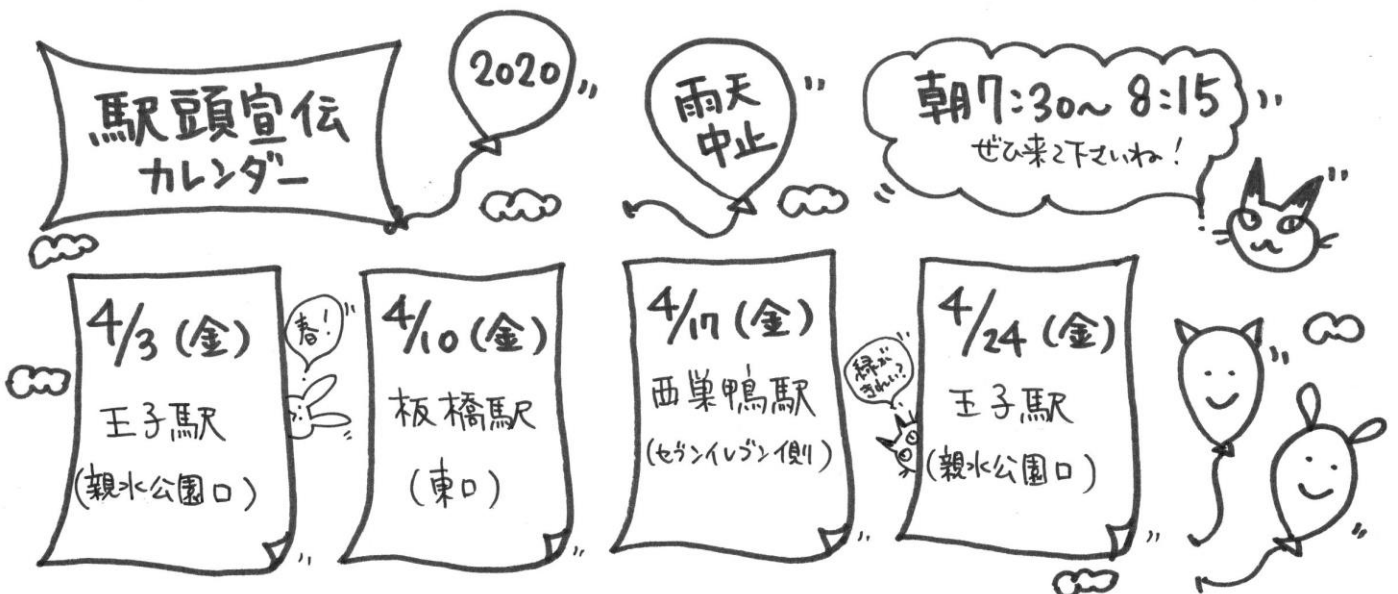 駅頭宣伝
カレンダー
2020
雨天
中止
朝7:30~8:15
ぜひ来て下さいね!
4/3(金)
王子駅
(親水公園口)
春!
4/10(金)
板橋駅
(東口)
4/17(金)
西巣鴨駅
(セブンイレブン側)
緑が
きれい?
4/24(金)
王子駅
(親水公園口)